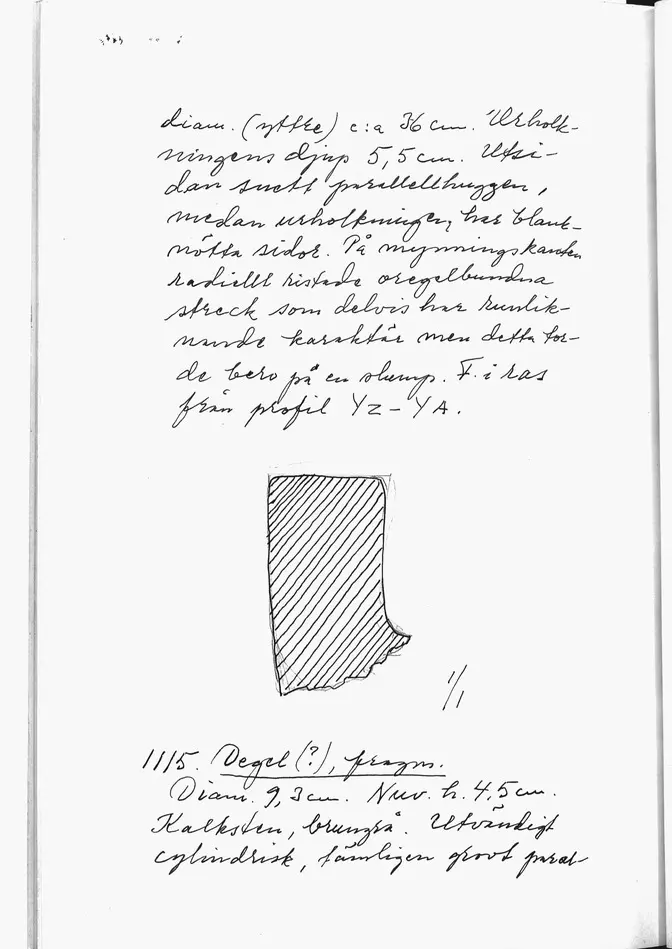 diam. (yttre) c:a 36 cm. Urholk-
ningens djup 5,5 cm. Utsi-
dan snett parallellhuggen,
medan urholkningen har blank-
nötta sidor. På mynningskanten
radiellt ristade oregelbundna
streck som delvis har runlik-
nande karaktär men detta tor-
de bero på en slump. F. i ras
från profil YZ-YA.
1/1
1115. Degel (?), fragm.
Diam. 9,3 cm. Nuv. h. 4,5 cm.
Kalksten, brungrå. Utvändigt
cylindrisk, tämligen grovt paral-